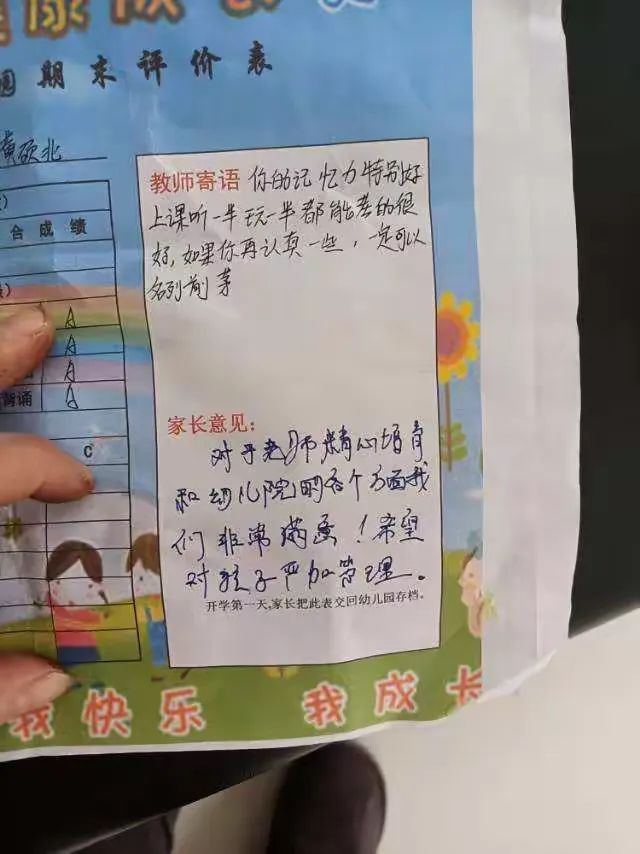 康
园期末评价表
黄砍北
合成绩
教师寄语 你的记忆力特别好
上课听一半玩一半都能考的很
好,如果你再认真一些,一定可以
名列前茅
A
A
A
背诵 A
C
家长意见:
对于老师精心培育
和幼儿院的各个方面我
们非常满意!希望
对孩子严加管理。
开学第一天,家长把此表交回幼儿园存档。
我快乐 我成长